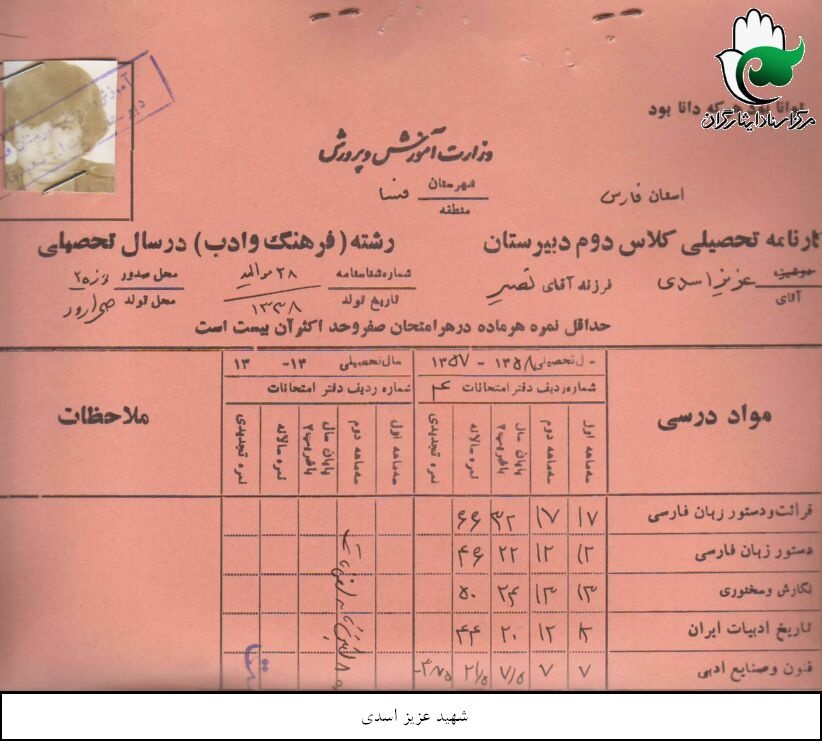 توانا بود هر که دانا بود
مرکز اسناد ایثارگران
وزارت آموزش و پرورش
استان فارس
شهرستان فسا
منطقه
کارنامه تحصیلی کلاس دوم دبیرستان رشته (فرهنگ و ادب) در سال تحصیلی
دوشیزه
آقای عزیز اسدی فرزند آقای نصیر شماره شناسنامه ۲۸ محل صدور
تاریخ تولد ۱۳۳۸ محل تولد
حداقل نمره هر ماده در هر امتحان صفر و حد اکثر آن بیست است
مواد درسی
سال تحصیلی ۱۳۵۸ - ۱۳۵۷
سال تحصیلی ۱۳ - ۱۳
ملاحظات
شماره ردیف دفتر امتحانات ۴
شماره ردیف دفتر امتحانات
سه ماهه اول سه ماهه دوم پایان سال باضریب ۲ نمره سالانه نمره تجدیدی
سه ماهه اول سه ماهه دوم پایان سال باضریب ۲ نمره سالانه نمره تجدیدی
قرائت و دستور زبان فارسی ۱۷ ۱۷ ۳۲ ۶۶
دستور زبان فارسی ۱۲ ۱۲ ۲۲ ۴۶
نگارش و سخنوری ۱۳ ۱۳ ۲۴ ۵۰
تاریخ ادبیات ایران ۱۲ ۱۲ ۲۰ ۴۴
فنون و صنایع ادبی ۷ ۷ ۷/۵ ۲۱/۵
شهید عزیز اسدی